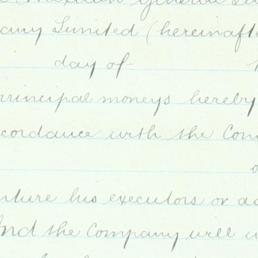 Mexican General
any Limited (hereinafte
day of
principal moneys hereby
cordance with the Con
nture his executors or ad
And the Company will